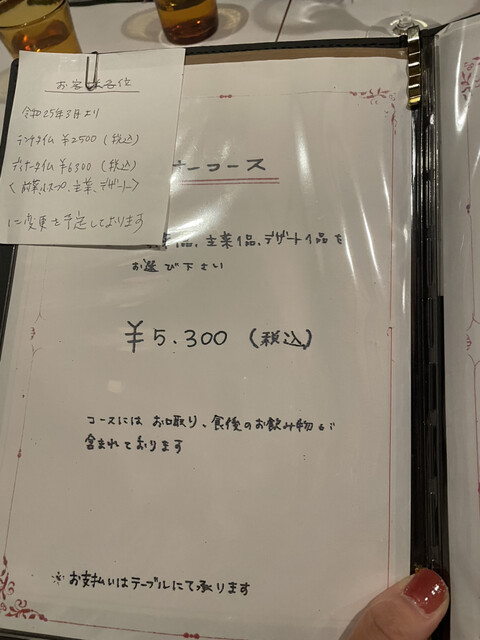 お客様各位
令和25年3月より
ランチタイム ¥2500 (税込)
ディナータイム ¥6300 (税込)
〈前菜、スープ、主菜、デザート〉
に変更を予定しております
ナーコース
品、主菜1品、デザート1品を
お選び下さい
¥5.300 (税込)
コースには お口取り、食後のお飲み物が
含まれております
※お支払いはテーブルにて承ります